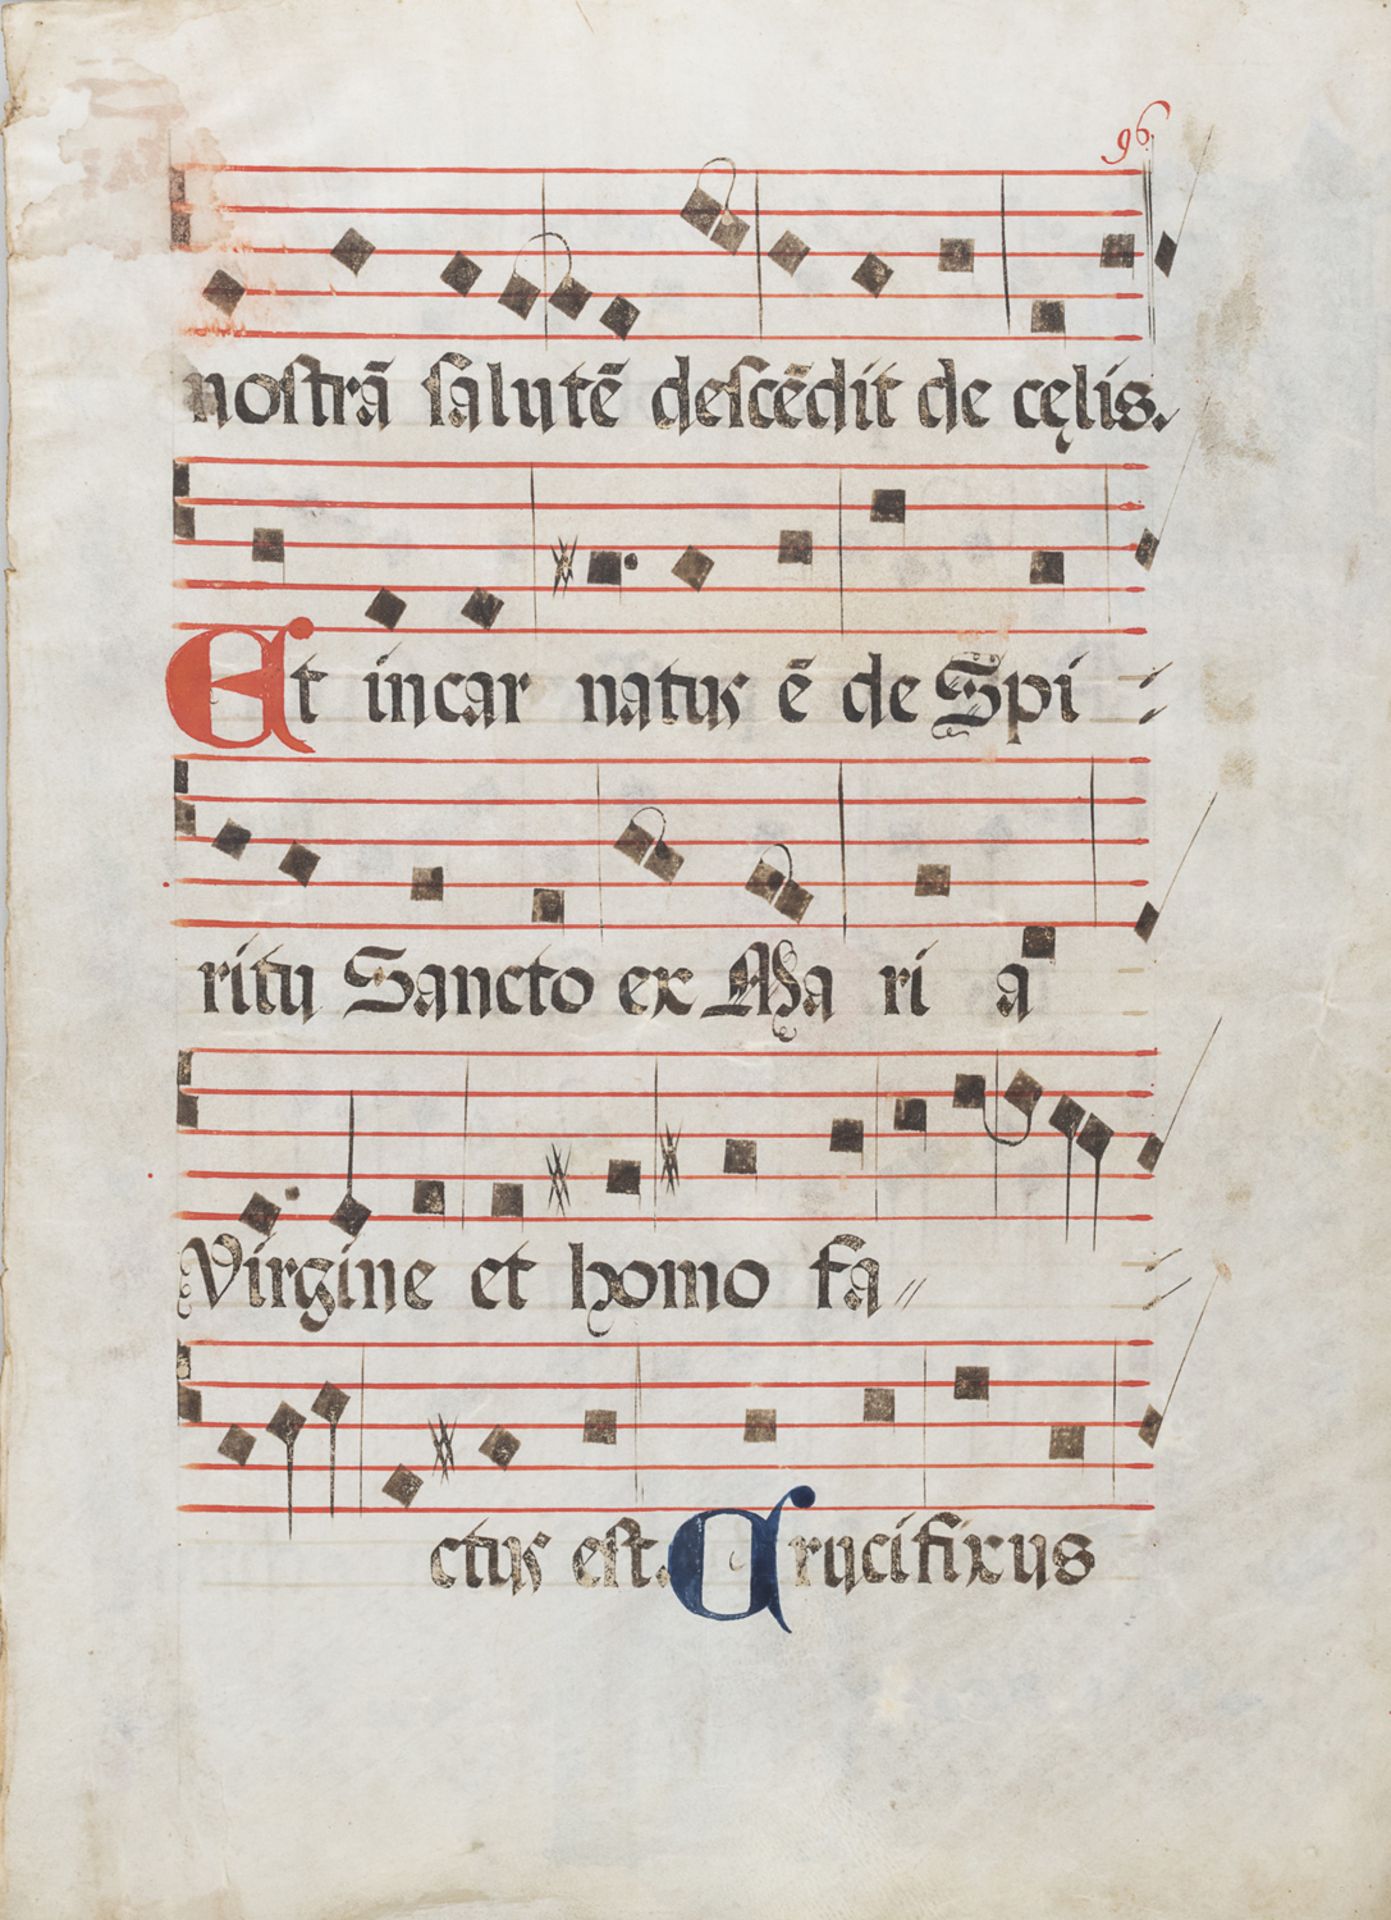 96
nostrā salutē descēdit de cęlis.
Et incar natus ē de Spi
ritu Sancto ex Ma ri a
Virgine et homo fa〃
ctus est. Crucifixus